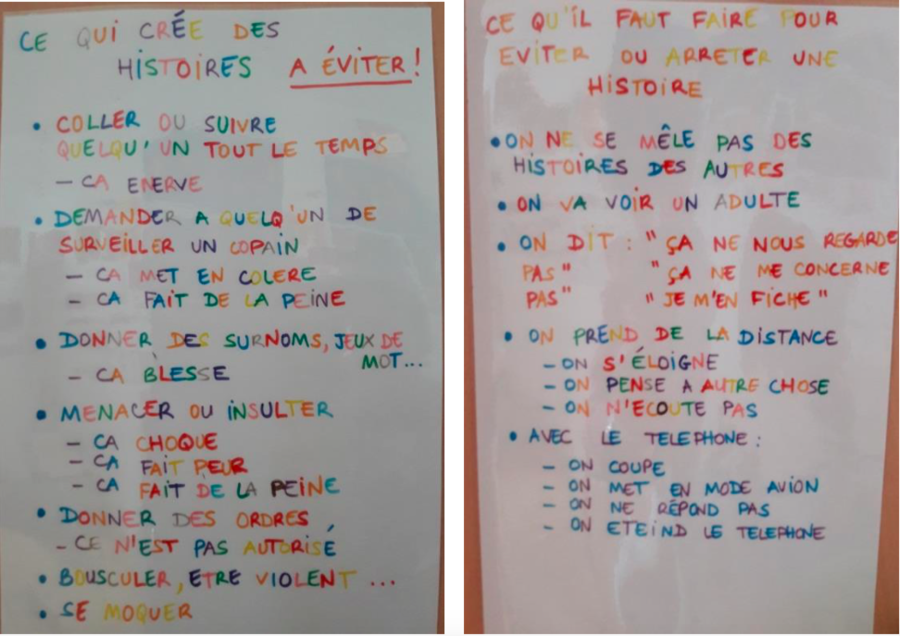 CE QUI CRÉE DES
HISTOIRES A ÉVITER !
• COLLER OU SUIVRE
QUELQU'UN TOUT LE TEMPS
– CA ENERVE
• DEMANDER A QUELQ'UN DE
SURVEILLER UN COPAIN
– CA MET EN COLERE
– CA FAIT DE LA PEINE
• DONNER DES SURNOMS, JEUX DE
MOT...
– CA BLESSE
• MENACER OU INSULTER
– CA CHOQUE
– CA FAIT PEUR
– CA FAIT DE LA PEINE
• DONNER DES ORDRES
– CE N'EST PAS AUTORISÉ
• BOUSCULER, ETRE VIOLENT ...
• SE MOQUER
CE QU'IL FAUT FAIRE POUR
EVITER OU ARRETER UNE
HISTOIRE
• ON NE SE MÊLE PAS DES
HISTOIRES DES AUTRES
• ON VA VOIR UN ADULTE
• ON DIT : " ÇA NE NOUS REGARDE
PAS " " ÇA NE ME CONCERNE
PAS" " JE M'EN FICHE "
• ON PREND DE LA DISTANCE
– ON S'ÉLOIGNE
– ON PENSE A AUTRE CHOSE
– ON N'ECOUTE PAS
• AVEC LE TELEPHONE :
– ON COUPE
– ON MET EN MODE AVION
– ON NE RÉPOND PAS
– ON ETEIND LE TELEPHONE